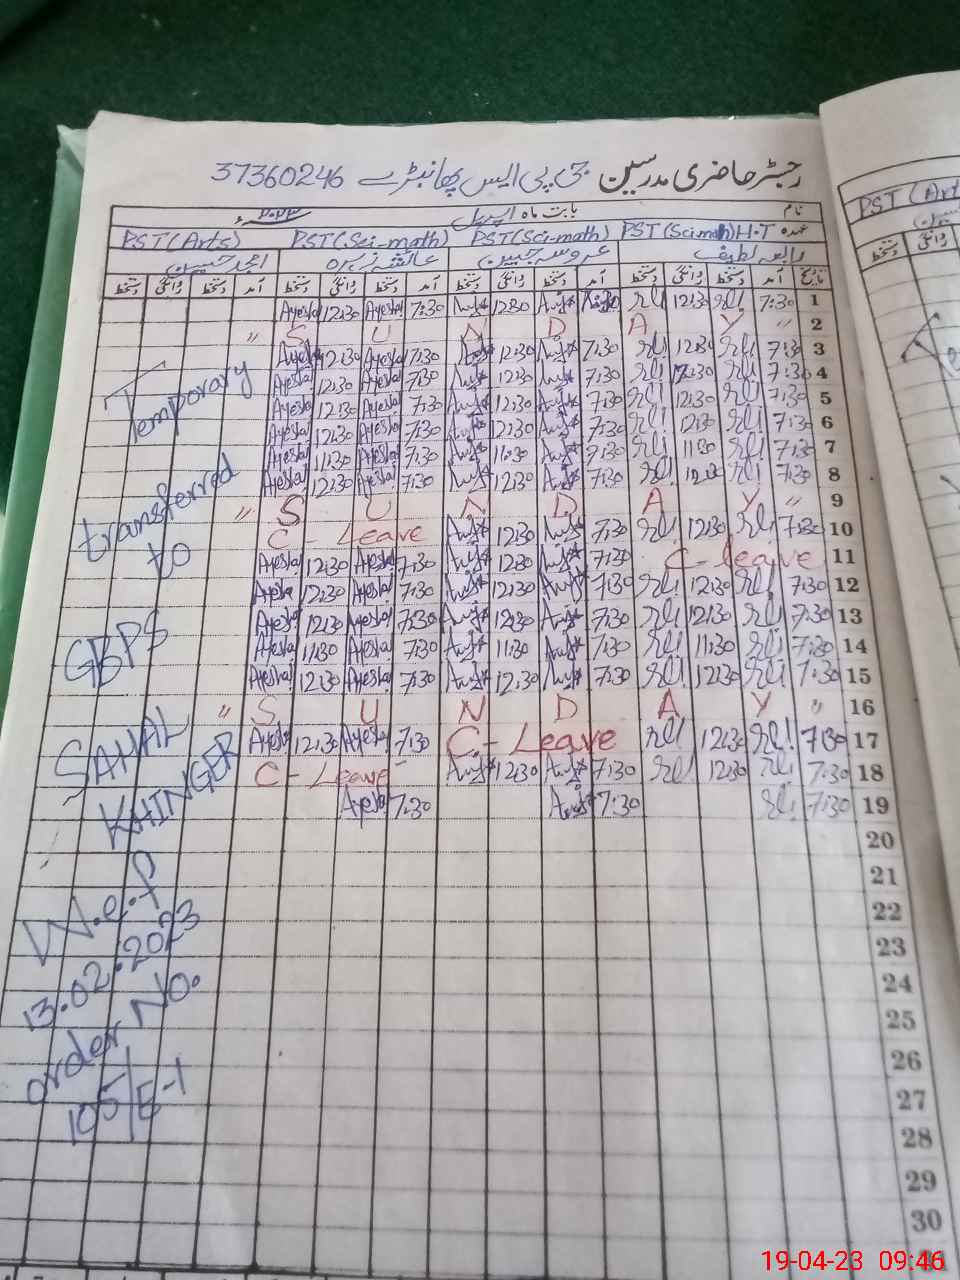 رجسٹر حاضری مدرسین جی پی ایس پھانبڑے 37360246
نام بابت ماہ اپریل ۲۰۲۳ء
عہدہ PST (Sci math) H.T PST (Sci-math) PST (Sci-math) PST (Arts)
رابعہ لطیف عروسہ جبین عائشہ زہرہ امجد حسین
تاریخ آمد دستخط روانگی دستخط آمد دستخط روانگی دستخط آمد دستخط روانگی دستخط آمد دستخط روانگی دستخط
Ayesha 12:30 Ayesha 7:30 12:30 12:30 7:30 1
" S U N D A Y " 2
Ayesha 12:30 Ayesha 7:30 12:30 7:30 12:30 7:30 3
Ayesha 12:30 Ayesha 7:30 12:30 7:30 12:30 7:30 4
Ayesha 12:30 Ayesha 7:30 12:30 7:30 12:30 7:30 5
Ayesha 12:30 Ayesha 7:30 12:30 7:30 12:30 7:30 6
Ayesha 11:30 Ayesha 7:30 11:30 7:30 11:30 7:30 7
Ayesha 12:30 Ayesha 7:30 12:30 7:30 12:30 7:30 8
" S U N D A Y " 9
C - Leave 12:30 7:30 12:30 7:30 10
Ayesha 12:30 Ayesha 7:30 12:30 7:30 C - leave 11
Ayesha 12:30 Ayesha 7:30 12:30 7:30 12:30 7:30 12
Ayesha 12:30 Ayesha 7:30 12:30 7:30 12:30 7:30 13
Ayesha 11:30 Ayesha 7:30 11:30 7:30 11:30 7:30 14
Ayesha 12:30 Ayesha 7:30 12:30 7:30 12:30 7:30 15
" S U N D A Y " 16
Ayesha 12:30 Ayesha 7:30 C - Leave 12:30 7:30 17
C - Leave 12:30 7:30 12:30 7:30 18
Ayesha 7:30 7:30 7:30 19
20
21
22
23
24
25
26
27
28
29
30
Temporary
transferred
to
GBPS
SAHAL
KHINGER
W.e.f
13.02.2023
order No.
105/E-1
PST (Art
19-04-23 09:46